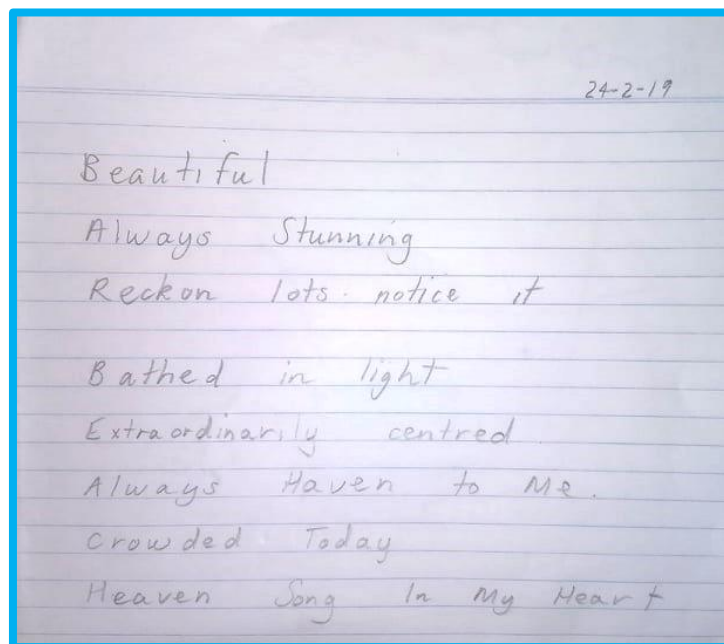 24-2-19
Beautiful
Always Stunning
Reckon lots. notice it
Bathed in light
Extraordinarily centred
Always Haven to Me.
Crowded Today
Heaven Song In My Heart